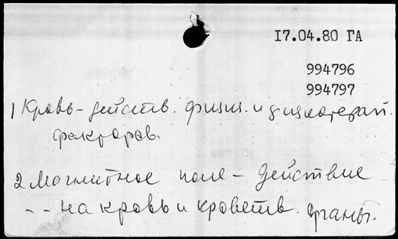 17.04.80 ГА
994796
994797
1 Кровь - действ. физич. и физиотерап.
факторов.
2 Магнитное поле - действие
- - на кровь и кроветв. органы.